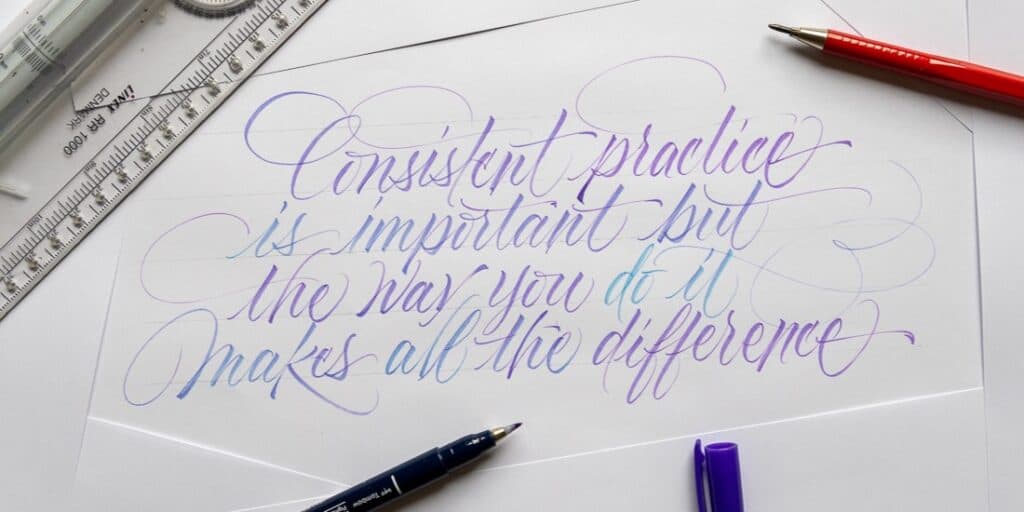 Consistent practice
is important but
the way you do it
makes all the difference
linex
DENMARK
RR 1000
Tombow